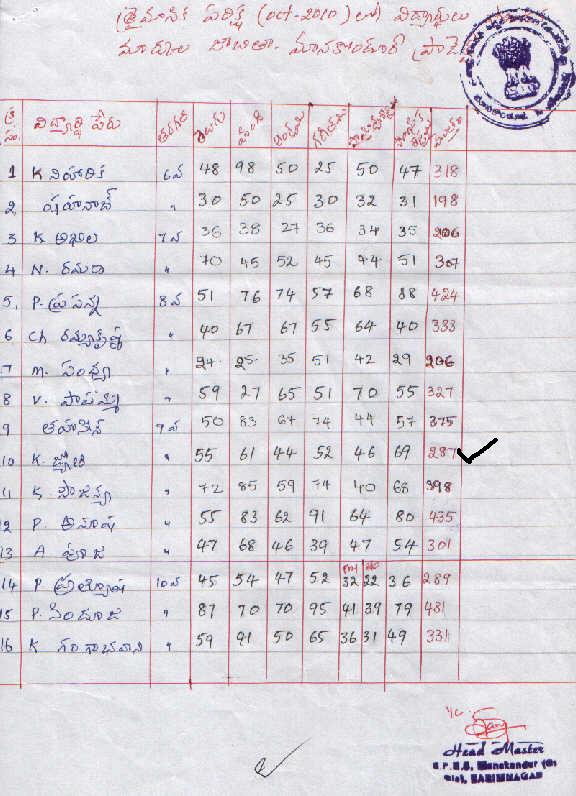 త్రైమాసిక పరీక్ష (oct-2010) లో విద్యార్థుల
మార్కుల జాబితా- మానకొండూర్
క్ర సం. విద్యార్థి పేరు తరగతి తెలుగు హింది ఇంగ్లీషు గణితము
1 K నిహారిక 6వ 48 98 50 25 50 47 318
2 షహనాజ్ " 30 50 25 30 32 31 198
3 K అఖిల 7వ 36 38 27 36 34 35 206
4 N. రమాదే " 70 45 52 45 44 51 307
5. P. ప్రసన్న 8వ 51 76 74 57 68 88 424
6 Ch " 40 67 67 55 64 40 333
7 M. సంధ్య " 24 25 35 51 42 29 206
8 V. పాపమ్మ " 59 27 65 51 70 55 327
9 తహసీన్ 9వ 50 83 67 74 44 57 375
10 K. జ్యోతి " 55 61 44 52 46 69 287
11 K. సౌజన్య " 72 85 59 74 40 68 398
12 P. అనూష " 55 83 62 91 64 80 435
13 A పూజ " 47 68 46 39 47 54 301
14 P 10వ 45 54 47 52 32 22 36 289
15 P. సింధూజ " 87 70 70 95 41 39 79 481
16 K గంగాభవాని " 59 91 50 65 36 31 49 331
Head Master
KARIMNAGAR